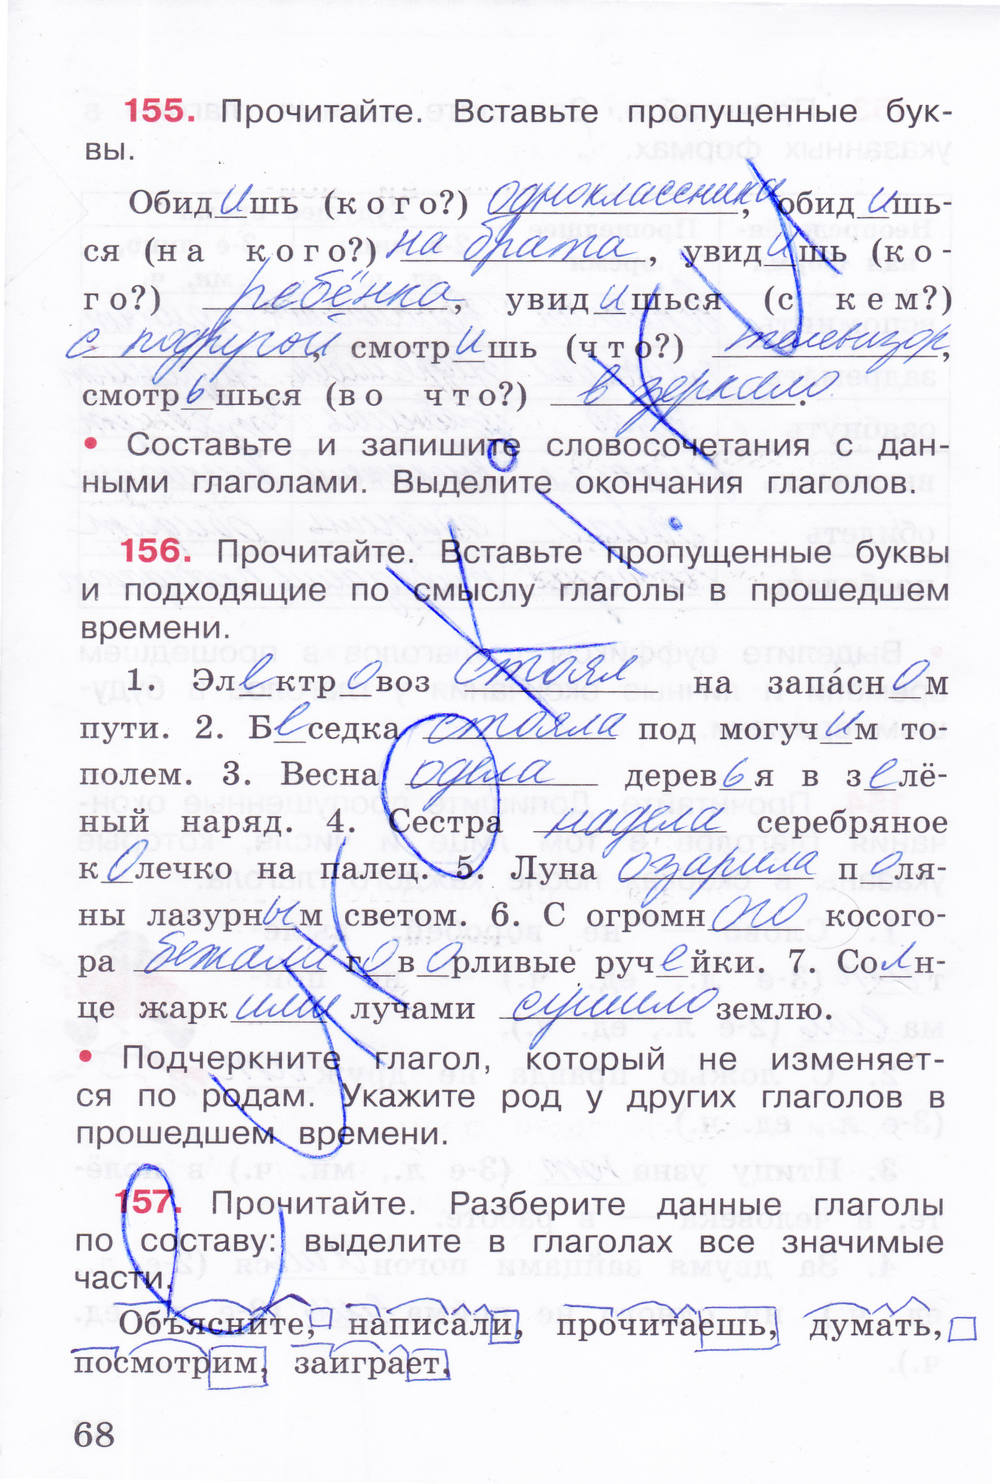 155. Прочитайте. Вставьте пропущенные бук-
вы.
Обидишь (кого?) одноклассника, обидишь-
ся (на кого?) на брата, увидишь (ко-
го?) ребёнка, увидишься (с кем?)
с подругой, смотришь (что?) телевизор,
смотрьшься (во что?) в зеркало.
• Составьте и запишите словосочетания с дан-
ными глаголами. Выделите окончания глаголов.
156. Прочитайте. Вставьте пропущенные буквы
и подходящие по смыслу глаголы в прошедшем
времени.
1. Электровоз стоял на запа́сном
пути. 2. Беседка стояла под могучим то-
полем. 3. Весна одела деревья в зелё-
ный наряд. 4. Сестра надела серебряное
колечко на палец. 5. Луна озарила поля-
ны лазурным светом. 6. С огромного косого-
ра бежали говорливые ручейки. 7. Солн-
це жаркими лучами сушило землю.
• Подчеркните глагол, который не изменяет-
ся по родам. Укажите род у других глаголов в
прошедшем времени.
157. Прочитайте. Разберите данные глаголы
по составу: выделите в глаголах все значимые
части.
Объясните, написали, прочитаешь, думать,
посмотрим, заиграет,
68